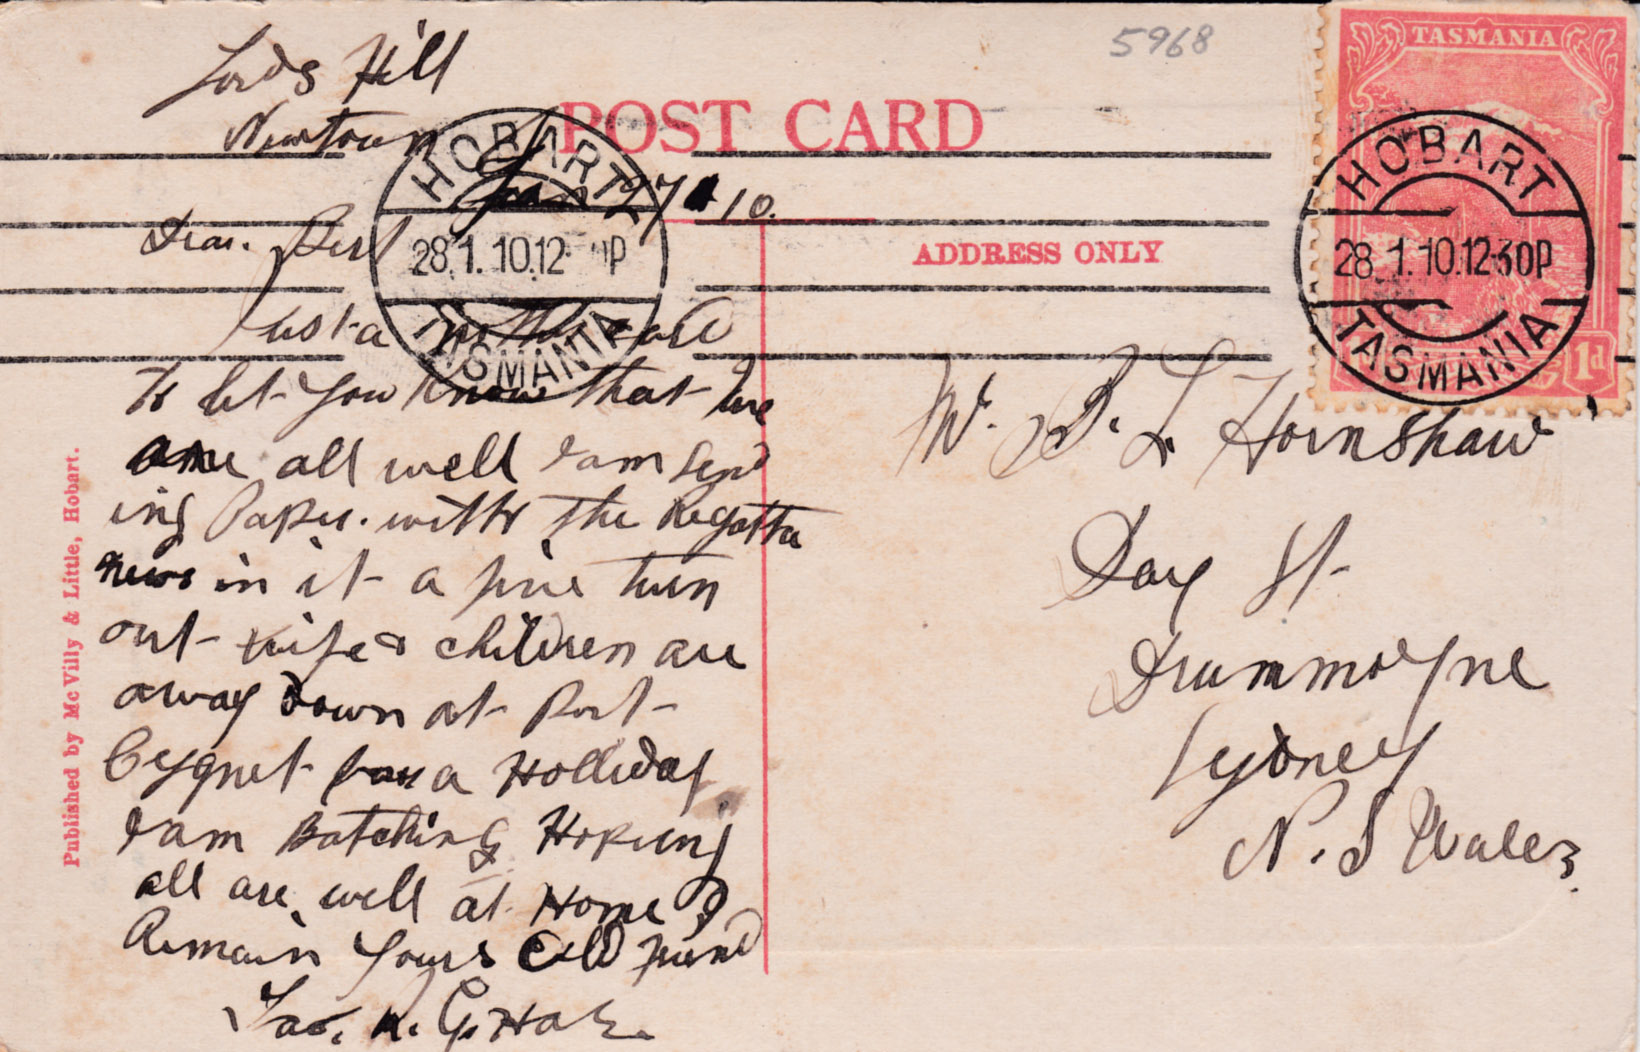 5968
TASMANIA
1d
POST CARD
ADDRESS ONLY
HOBART
28.1.10.12 P
TASMANIA
HOBART
28.1.10.12 30P
TASMANIA
Lords Hill
Newtown
Jan 27 10.
Dear. Bert
Just a card
to let you know that we
are all well I am send
ing Paper. with the Regatta
news in it a fine turn
out wife & children are
away down at Port
Cygnet for a Holliday
I am Batching Hoping
all are well at Home I
Remain Yours Old friend
Jas. R. G.
Mr. B. L. Hornshaw
Day St
Drummoyne
Sydney
N. S Wales.
Published by McVilly & Little, Hobart.